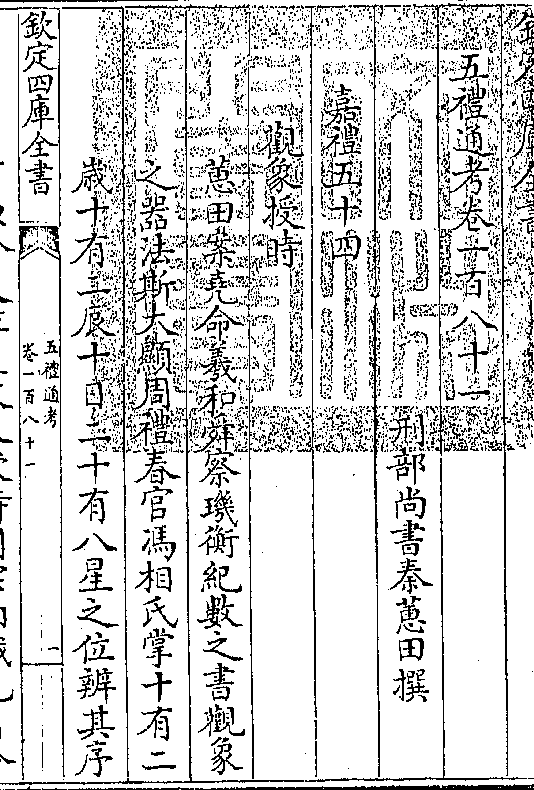 欽定四庫全書
五禮通考卷一百八十一
刑部尚書秦蕙田撰
嘉禮五十四
觀象授時
蕙田案堯命羲和舜察璣衡紀數之書觀象
之器法斯大顯周禮春官馮相氏掌十有二
歲十有二辰十日二十有八星之位辨其序
欽定四庫全書
五禮通考
卷一百八十一
一